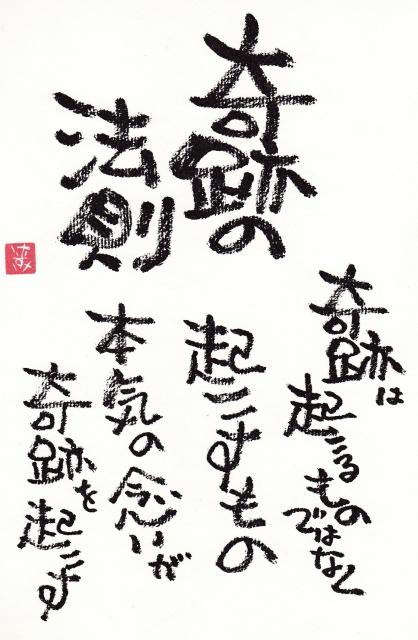 奇跡の
法則
奇跡は
起こる
もの
ではなく
起こすもの
本気の
念いが
奇跡を
起こす